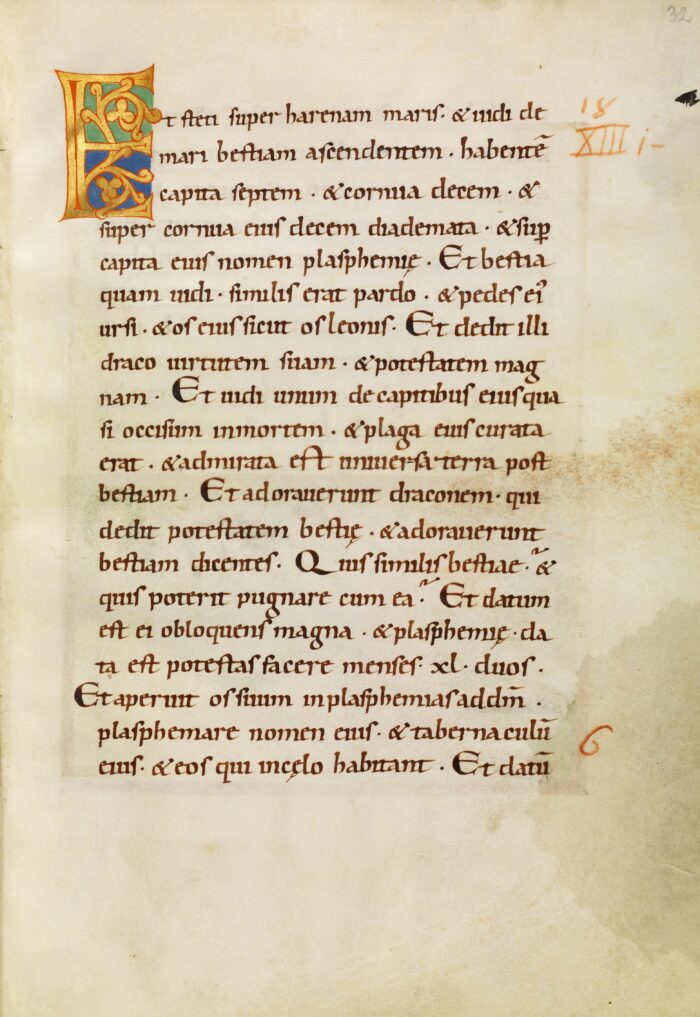 32
Et steti super harenam maris · & uidi de
18
mari bestiam ascendentem · habentē
XIII i-
capita septem · & cornua decem · &
super cornua eius decem diademata · & sup̄
capita eius nomen plasphemię · Et bestia
quam uidi · similis erat pardo · & pedes ei᾽
ursi · & os eius sicut os leonis · Et dedit illi
draco uirtutem suam · & potestatem mag
nam · Et uidi unum de capitibus eius qua
si occisum inmortem · & plaga eius curata
erat · & admirata est uniuersa terra post
bestiam · Et adorauerunt draconem · qui
dedit potestatem bestię · & adorauerunt
bestiam dicentes · Quis similis bestiae · &
quis poterit pugnare cum ea · Et datum
est ei os loquens magna · & plasphemię · da
ta est potestas facere menses · xl · duos ·
Et aperuit os suum inplasphemias addm̄ ·
plasphemare nomen eius · & tabernaculū
6
eius · & eos qui incęlo habitant · Et datū